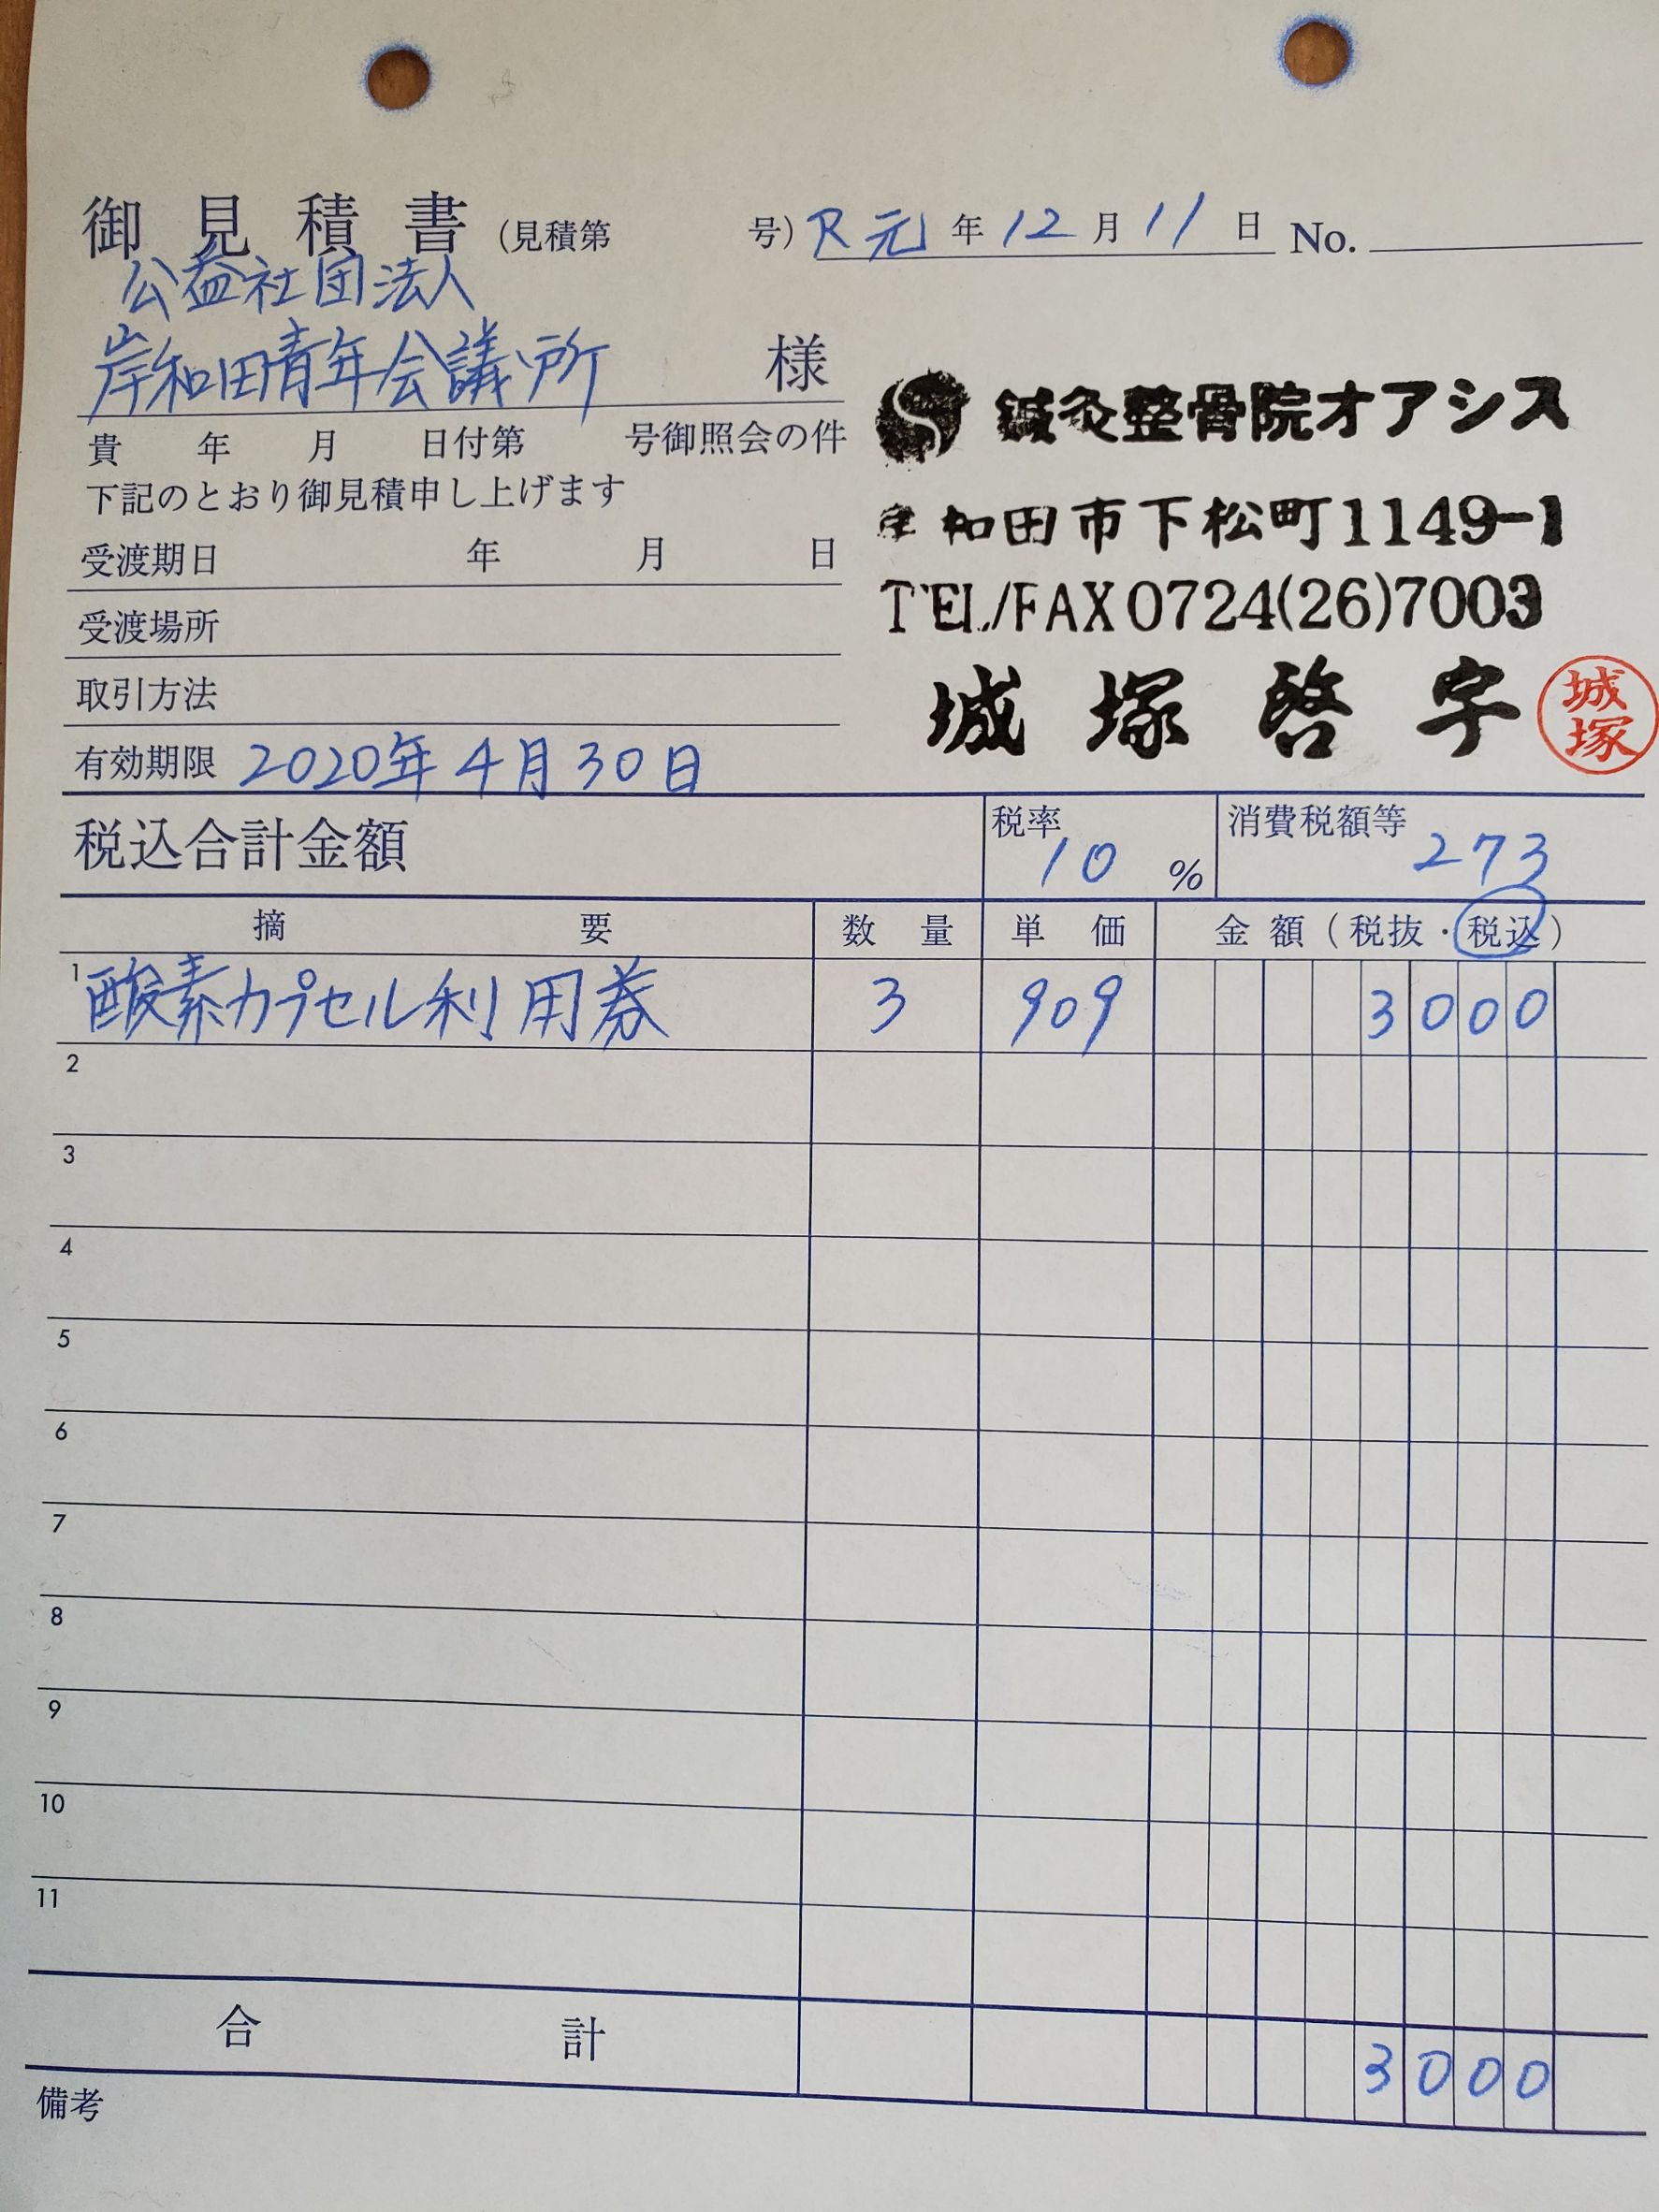 御見積書 (見積第 号) R元年12月11日 No.
公益社団法人
岸和田青年会議所 様
貴 年 月 日付第 号御照会の件
下記のとおり御見積申し上げます
受渡期日 年 月 日
受渡場所
取引方法
有効期限 2020年4月30日
鍼灸整骨院オアシス
岸和田市下松町1149-1
TEL/FAX0724(26)7003
城塚啓字
城塚
税込合計金額 税率 10 % 消費税額等 273
摘要 数量 単価 金額(税抜・税込)
1 酸素カプセル利用券 3 909 3000
2
3
4
5
6
7
8
9
10
11
合計 3000
備考